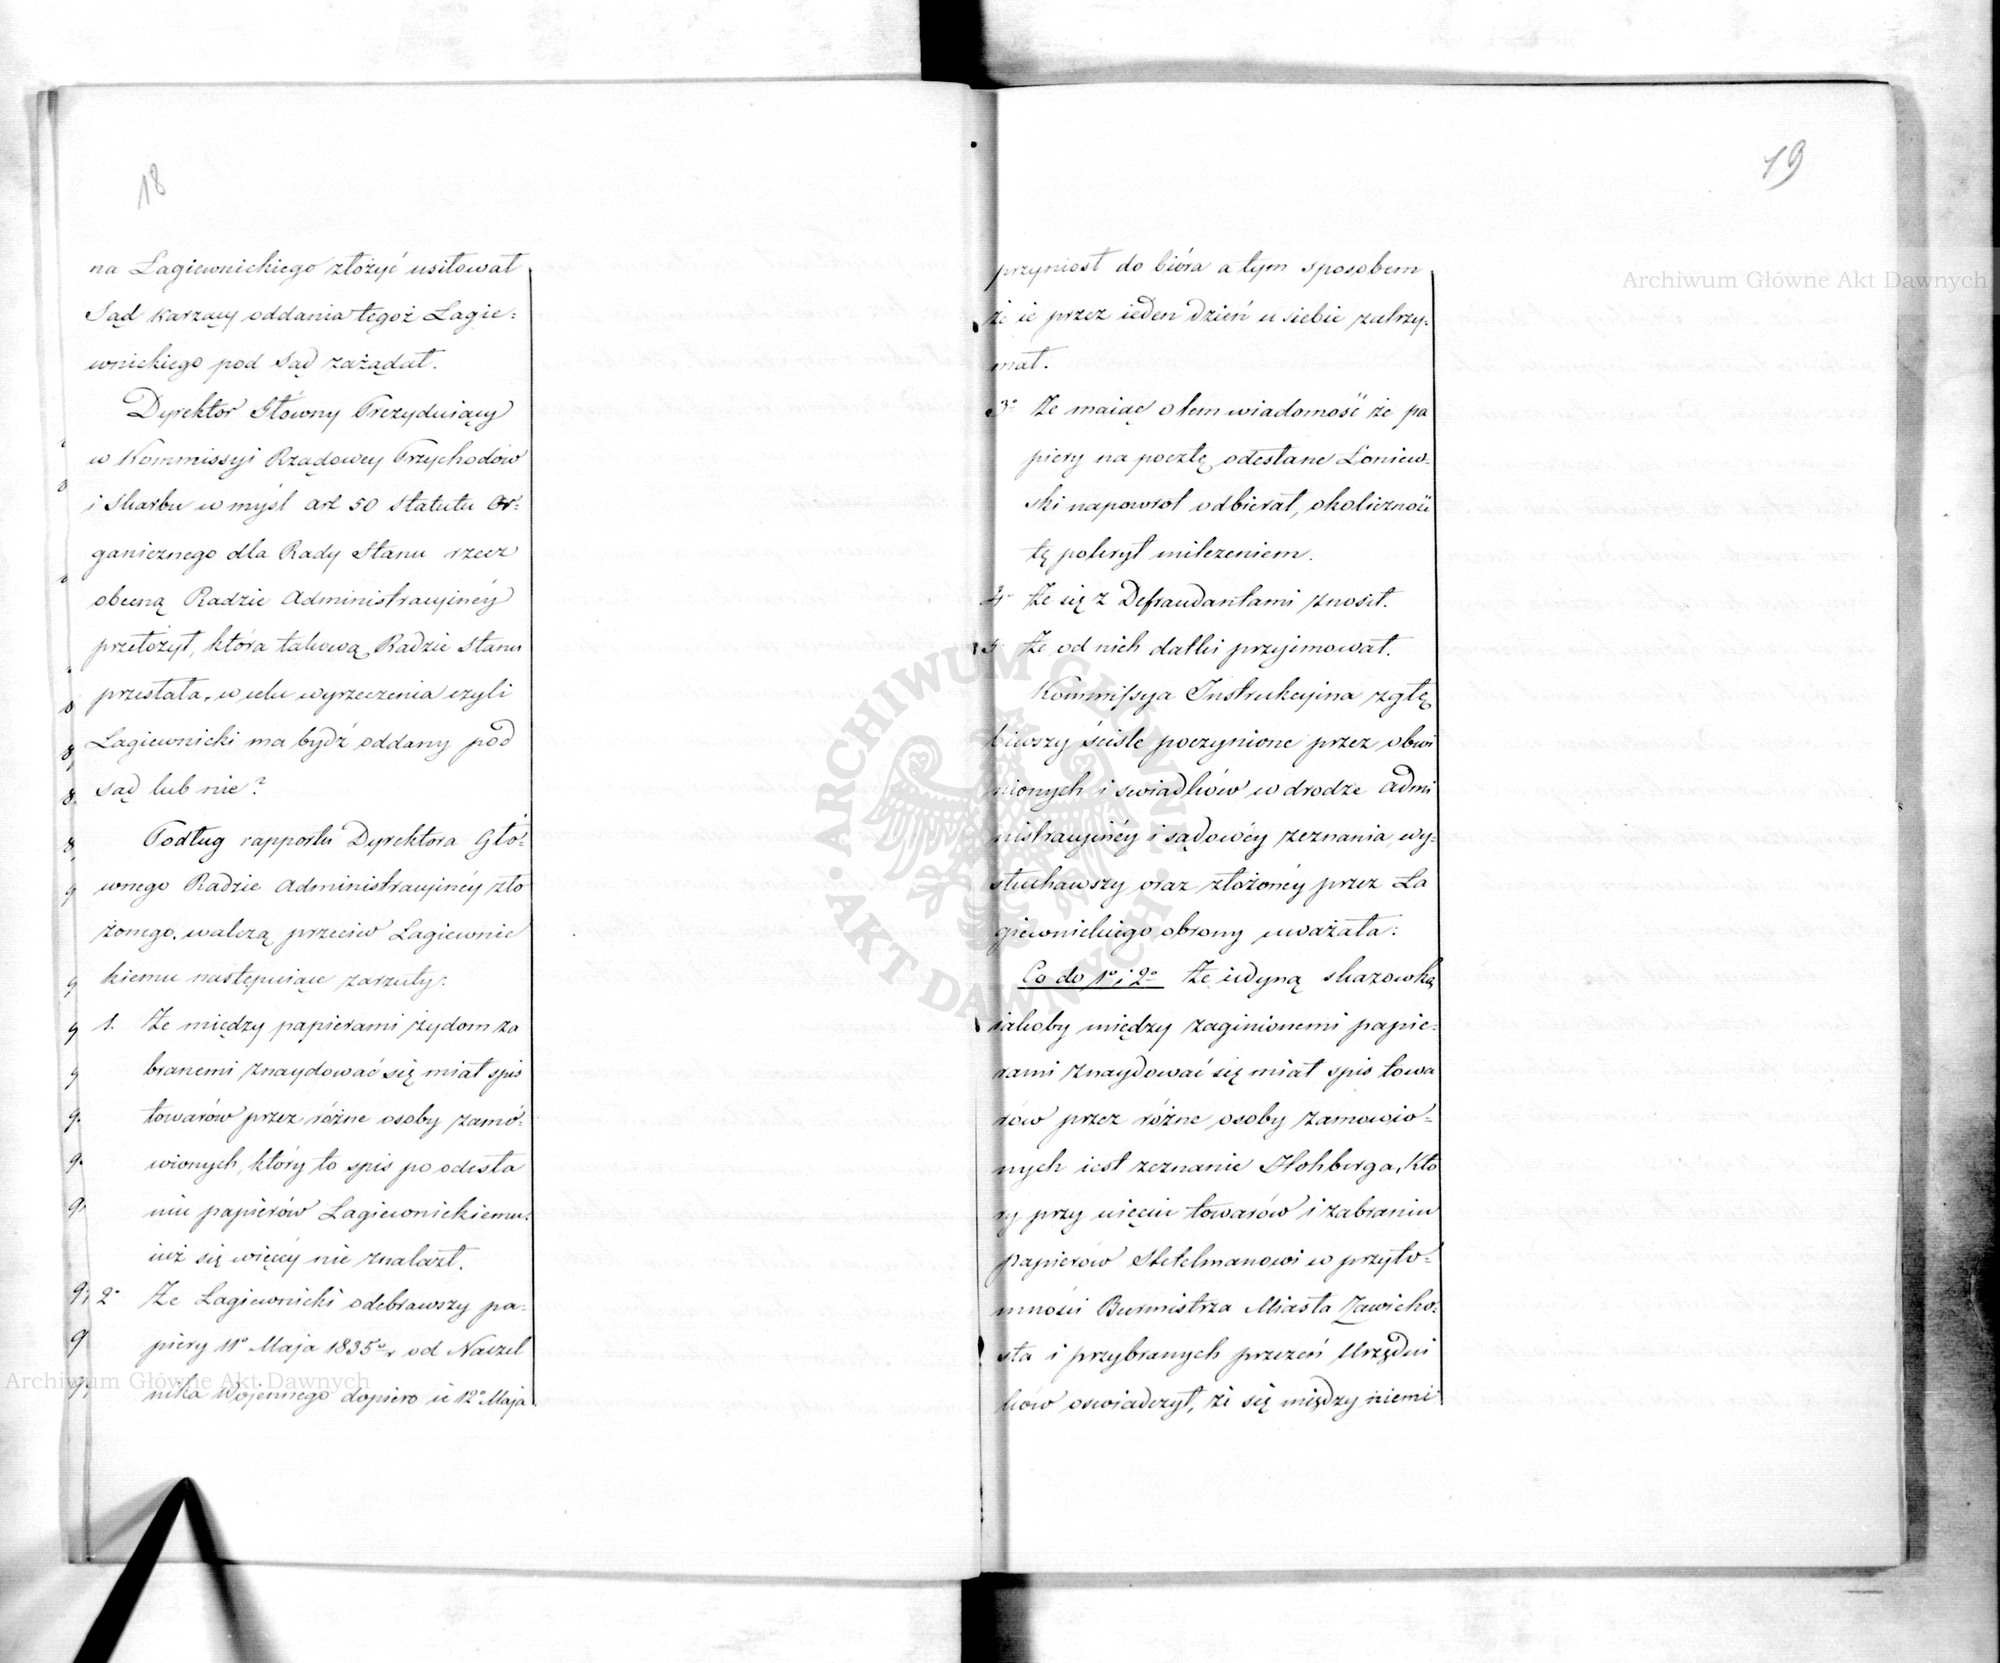 18
na Łagiewnickiego złożyć usiłował
Sąd karzący oddania tegoż Łagie=
wnickiego pod Sąd zażądał.
Dyrektor Główny Prezyduiący
w Kommissyi Rządowey Przychodów
i Skarbu w myśl art 50 Statutu Or=
ganicznego dla Rady Stanu rzecz
obecną Radzie Administracyinéy
przełożył, która takową Radzie Stanu
przesłała, w celu wyrzeczenia czyli
Łagiewnicki ma bydź oddany pod
sąd lub nie?
Podług rapportu Dyrektora Głó=
wnego Radzie Administracyinéy zło
żonego, walczą przeciw Łagiewnic
kiemu następuiące zarzuty:
1. Że między papierami żydom za
branemi znaydować się miał spis
towarów przez różne osoby zamó=
wionych, który to spis po odesła
niu papierów Łagiewnickiemu,
iuż się więcéy nie znalazł.
2° Że Łagiewnicki odebrawszy pa=
piery 11° Maja 1835° r od Naczel
nika Wojennego dopiero ie 12° Maja
19
przyniosł do bióra a tym sposobem
że ie przez ieden dzień u siebie zatrzy=
mał.
3° Że maiąc o tem wiadomość że pa
piery na pocztę odesłane Łoniew=
ski napowrot odbierał, okoliczność
tę pokrył milczeniem.
4° Że się z Defraudantami znosił.
5° Że od nich datki przyimował.
Kommissya Instrukcyina zgłę
biwszy ściśle poczynione przez obwi
nionych i swiadków w drodze admi
nistracyinéy i sądowéy zeznania, wy=
słuchawszy oraz złożonéy przez Ła
giewnickiego obrony uważała:
Co do 1° i 2° Że iedyną skazowką
iakoby między zaginionemi papie=
rami znaydować się miał spis towa
rów przez różne osoby zamowio=
nych iest zeznanie Hohberga, Któ
ry przy uięciu towarów i zabraniu
papierów Stetelmanowi w przyto=
mności Burmistrza Miasta Zawicho=
sta i przybranych przezeń Urzędni
ków oswiadczył, że się między niemi
Archiwum Główne Akt Dawnych
Archiwum Główne Akt Dawnych
ARCHIWUM GŁÓWNE AKT DAWNYCH